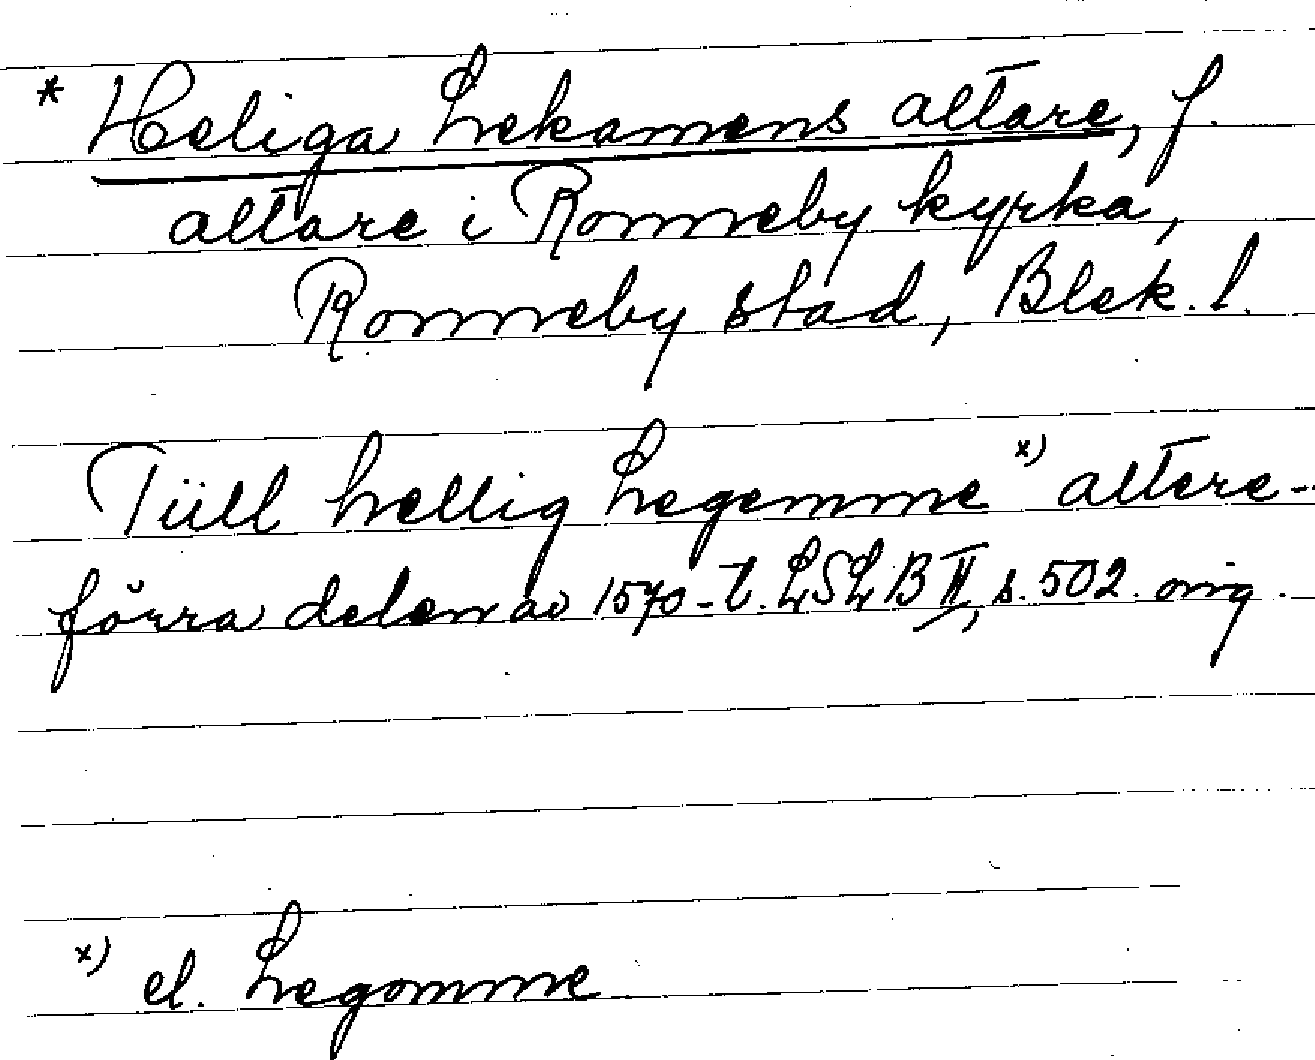 * Heliga Lekamens altare, f.
altare i Ronneby kyrka,
Ronneby stad, Blek. l.
Tüll hellig Legemme x) altere -
förra delen av 1570-t. LSLB II, s. 502. orig.
x) el. Legomme